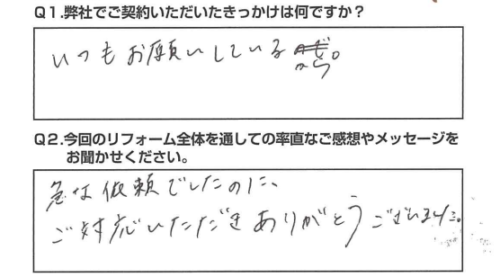 Q1.弊社でご契約いただいたきっかけは何ですか？
いつもお願いしているから。
Q2.今回のリフォーム全体を通しての率直なご感想やメッセージを
お聞かせください。
急な依頼でしたのに、
ご対応いただきありがとうございました。